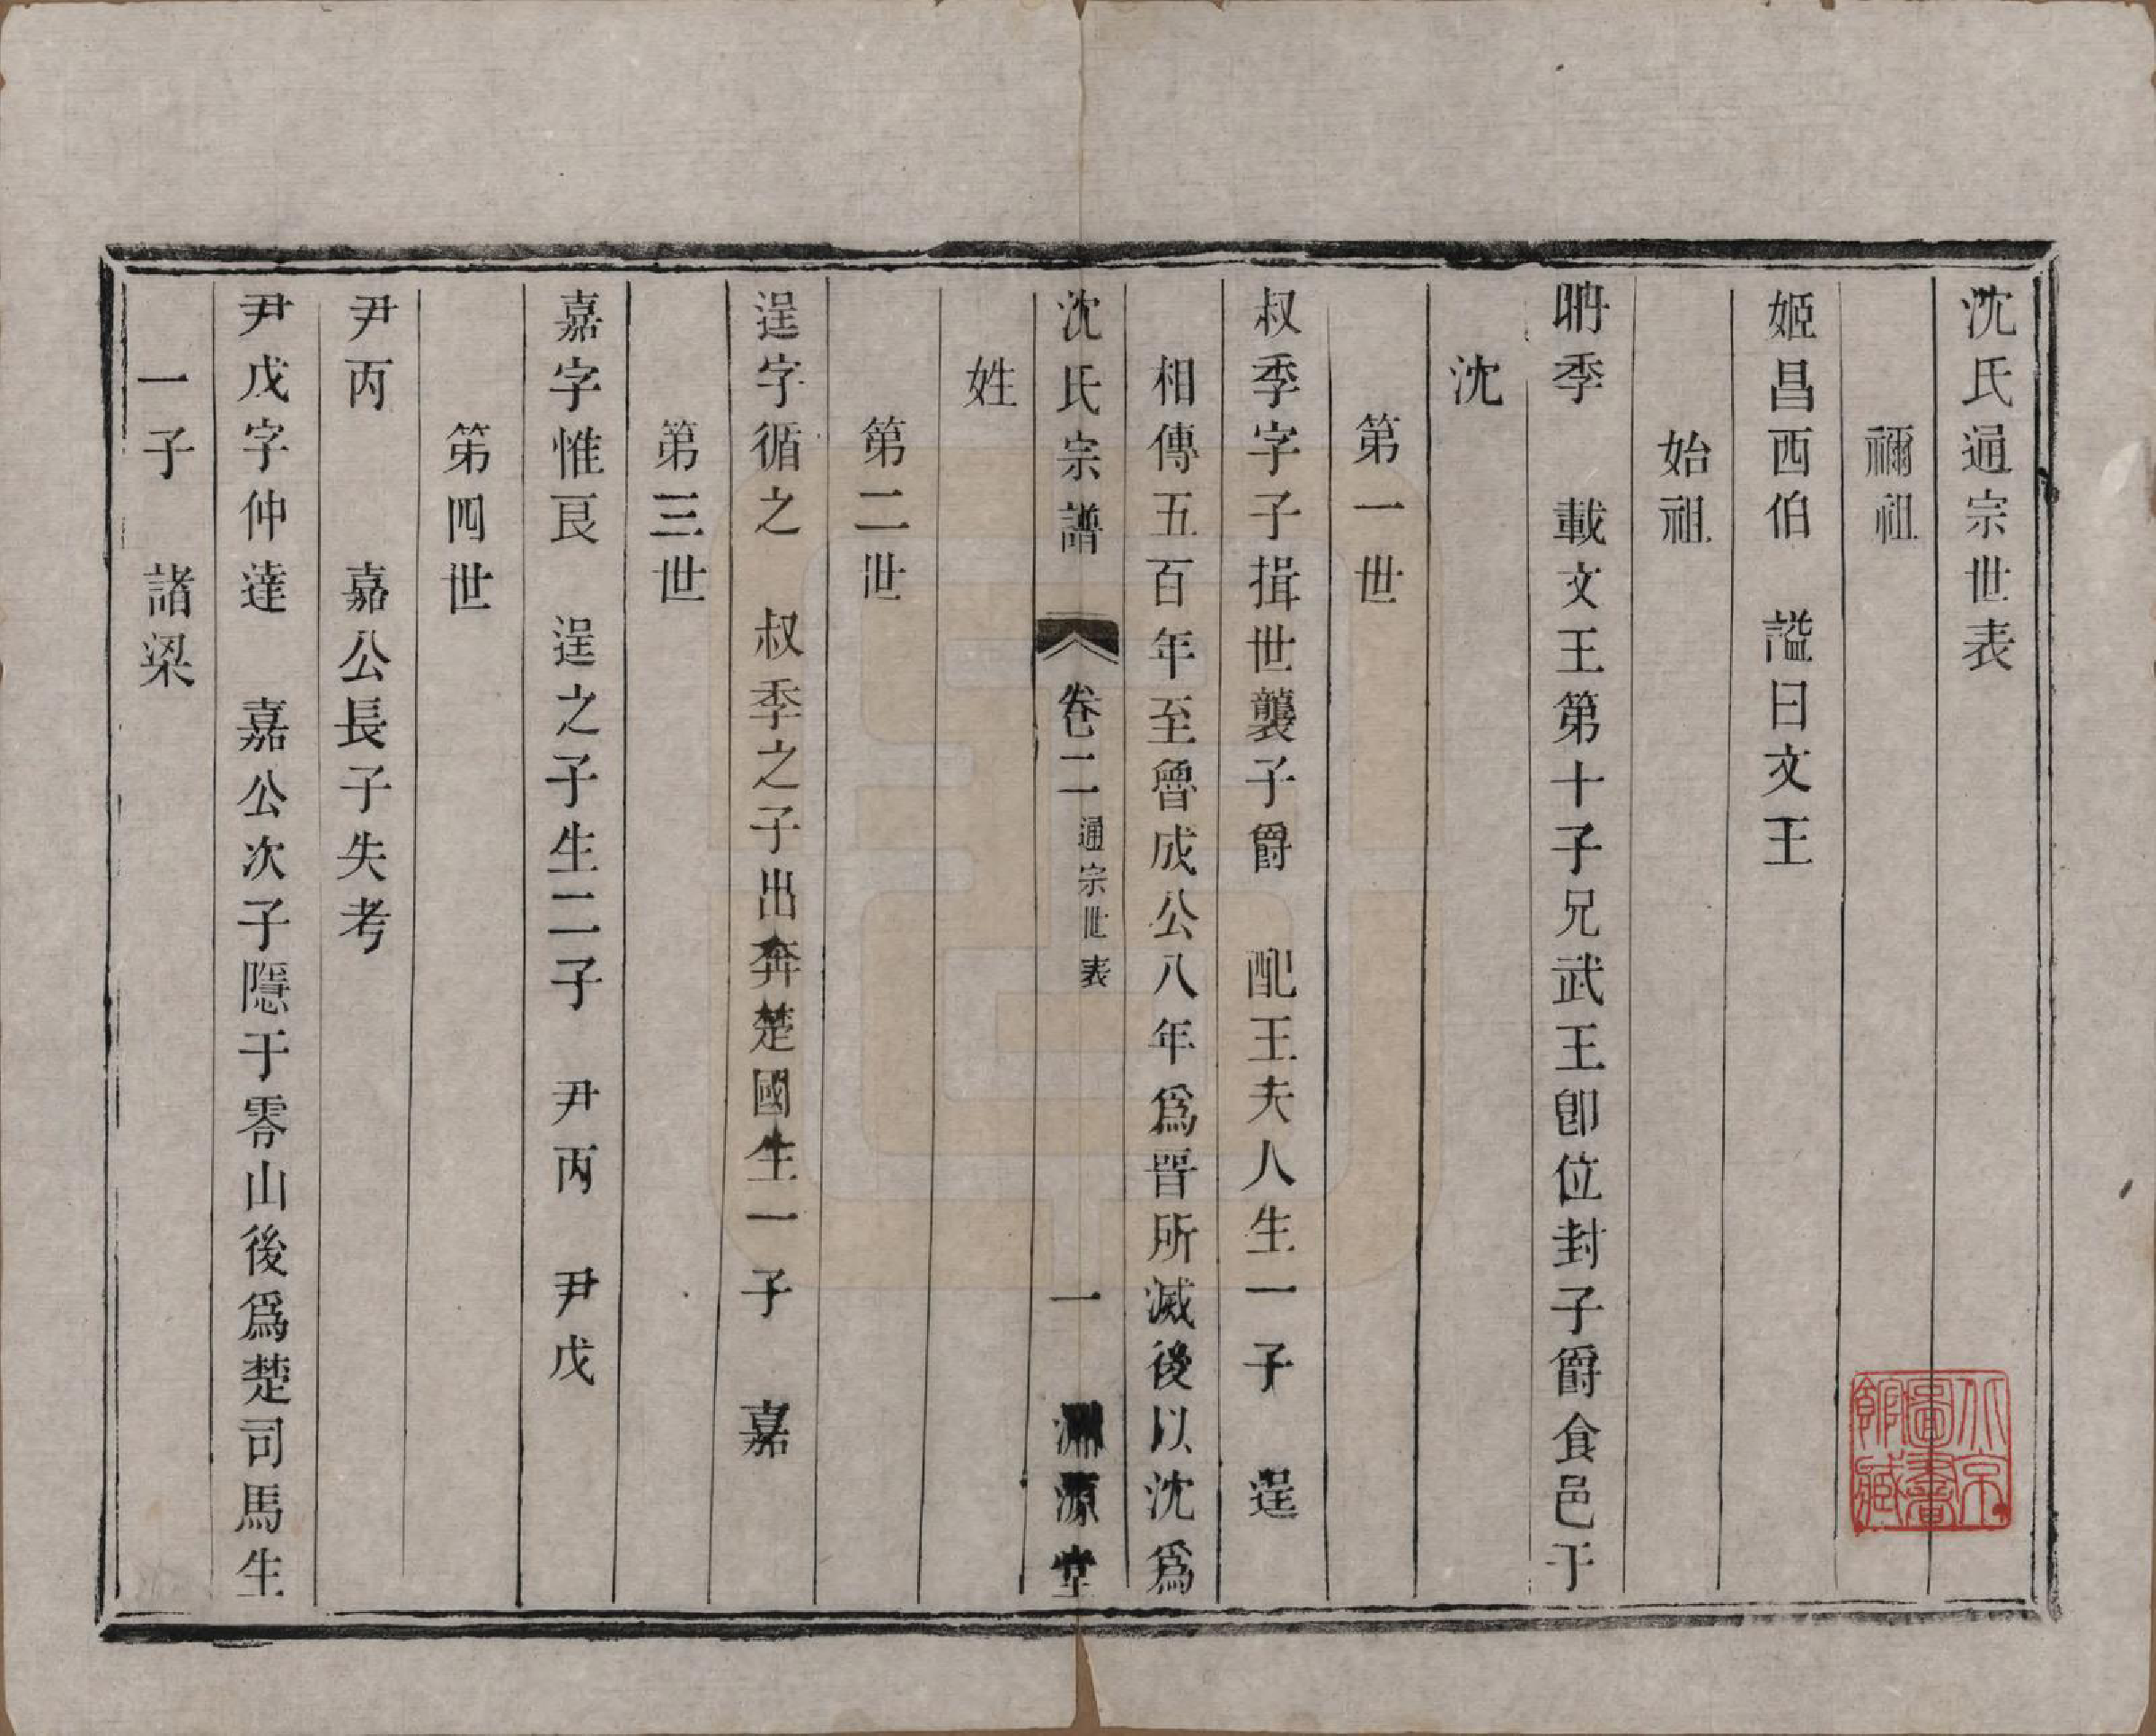 沈氏通宗世表
禰祖
姬昌西伯　謚曰文王
始祖
聃季　載文王第十子兄武王卽位封子爵食邑于
沈
第一世
叔季字子揖世襲子爵　配王夫人生一子　逞
相傳五百年至魯成公八年爲晉所滅後以沈爲
沈氏宗譜　卷二　通宗世表　一　淵源堂
姓
第二世
逞字循之　叔季之子出奔楚國生一子　嘉
第三世
嘉字惟良　逞之子生二子　尹丙　尹戊
第四世
尹丙　嘉公長子失考
尹戊字仲達　嘉公次子隱于零山後爲楚司馬生
一子　諸梁
北京圖書館藏